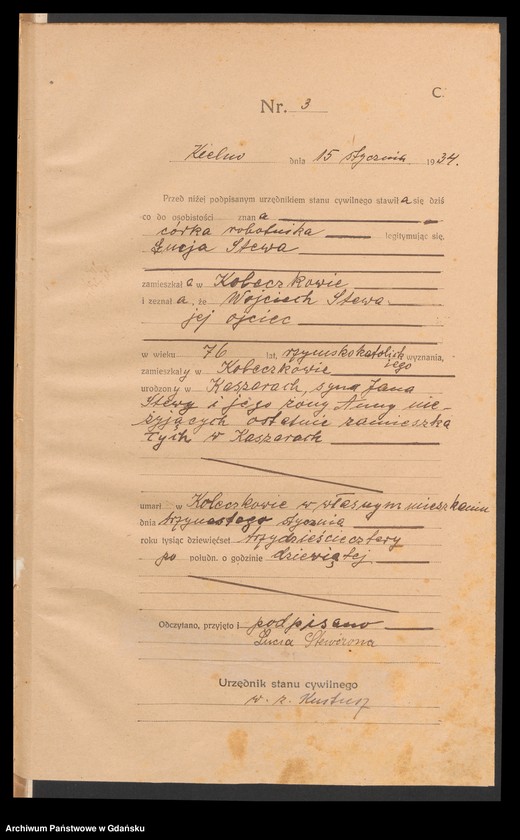 C.
Nr. 3
Kielno dnia 15 stycznia 1934.
Przed niżej podpisanym urzędnikiem stanu cywilnego stawiła się dziś
co do osobistości znana
córka robotnika legitymując się,
Łucja Stewa
zamieszkała w Kobeczkowie
i zeznała, że Wojciech Stewa
jej ojciec
w wieku 76 lat, rzymskokatolickiego wyznania,
zamieszkały w Kobeczkowie
urodzony w Kaszarach, syna Jana
Stewy i jego żony Anny nie-
żyjących ostatnie zamieszka
łych w Kaszarach
umarł w Koleczkowie w własnym mieszkaniu
dnia trzynastego stycznia
roku tysiąc dziewięćset trzydzieściecztery
po połudn. o godzinie dziewiątej
Odczytano, przyjęto i podpisano
Łucia Stewózona
Urzędnik stanu cywilnego
w. z.
Archiwum Państwowe w Gdańsku